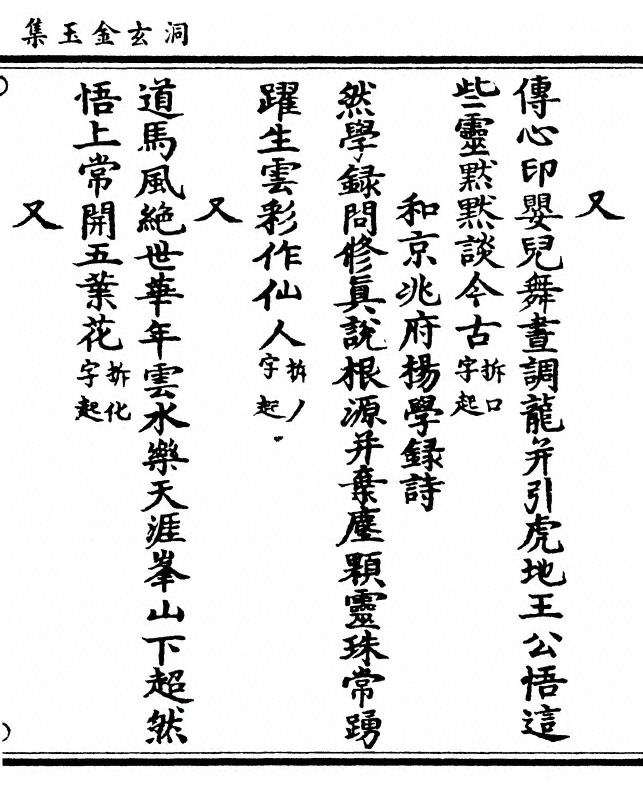 洞玄金玉集
又
傳心印嬰兒舞晝調龍并引虎地王公悟這
些靈默默談今古拆口字起
和京兆府楊學録詩
然學録問修真說根源并棄塵顆靈珠常踴
躍生雲彩作仙人拆丿字起
又
道馬風絶世華年雲水樂天涯峯山下超然
悟上常開五葉花拆化字起
又